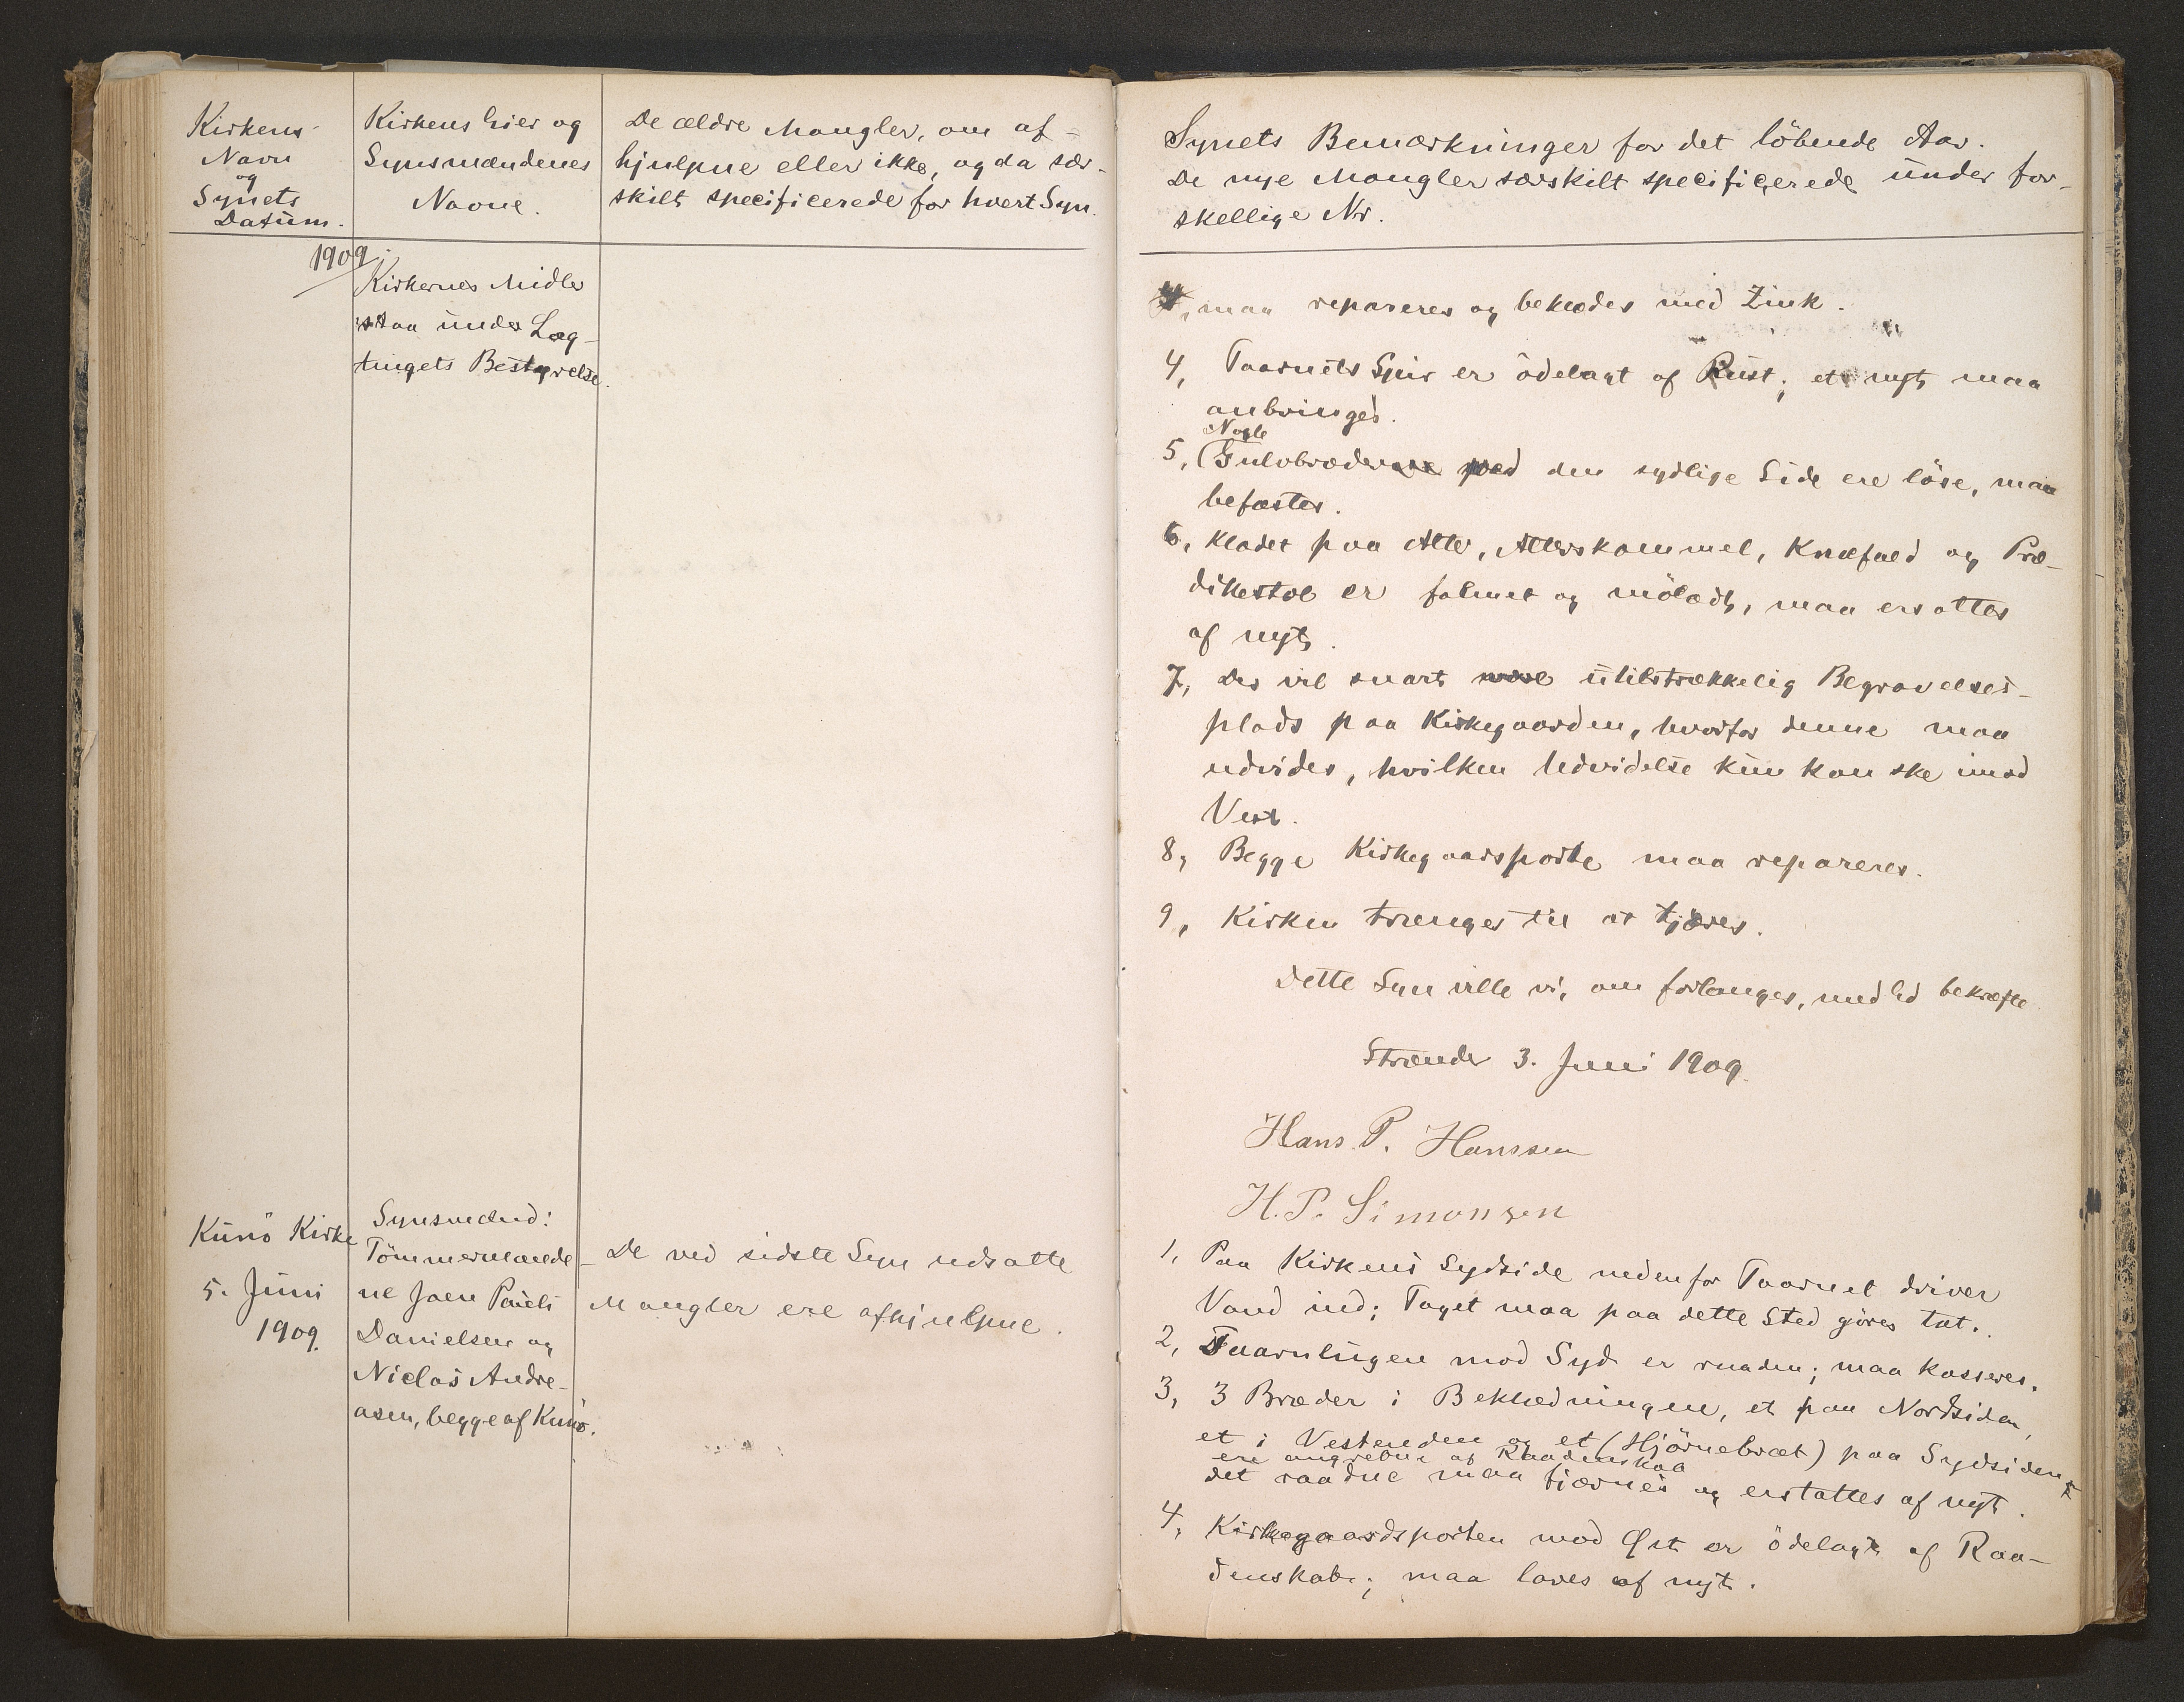 Kirkens
Navn
og
Synets
Datum.
Kirkens Eier og
Synsmændenes
Navne.
De ældre Mangler, om af-
hjulpne eller ikke, og da sær-
skilt specificerede for hvert Syn.
1909.
Kirkernes Midler
staa under Lag-
tingets Bestyrelse.
Kunö Kirke
5. Juni
1909.
Synsmænd:
Tömmermænde-
ne Joen Pauli
Danielsen og
Niclas Andre-
asen, begge af Kunö.
De ved sidste Syn udsatte
Mangler ere afhjulpne.
Synets Bemærkninger for det löbende Aar.
De nye Mangler særskilt specificerede under for-
skellige Nr.
maa repareres og beklædes med Zink.
4, Taarnets Spir er ödelagt af Rust; et nyt maa
anbringes.
Nogle
5, Gulvbræder ved den sydlige Side ere löse, maa
befæstes.
6, Klædet paa Alter, Alterskammel, Knæfald og Præ-
dikestol er falmet og mölædt, maa ersattes
af nyt.
7, Der vil snart være utilstrækkelig Begravelses-
plads paa Kirkegaarden, hvorfor denne maa
udvides, hvilken Udvidelse kun kan ske imod
Vest.
8, Begge Kirkegaarsporte maa repareres.
9, Kirken trænges til at tjæres.
Dette Syn ville vi, om forlanges, med Ed bekræfte
Strænder 3. Juni 1909.
Hans P. Hanssen
H. P. Simonsen
1, Paa Kirkens Sydside nedenfor Taarnet driver
Vand ind; Taget maa paa dette Sted göres tæt.
2, Taarnlugen mod Syd er raaden; maa kasseres.
3, 3 Bræder i Beklædningen, et paa Nordsiden,
et i Vestenden og et (Hjörnebræt) paa Sydsiden
ere angrebne af Raadenskab
det raadne maa fjærnes og erstattes af nyt.
4, Kirkegaardsporten mod Øst er ödelagt af Raa-
denskab; maa laves af nyt.